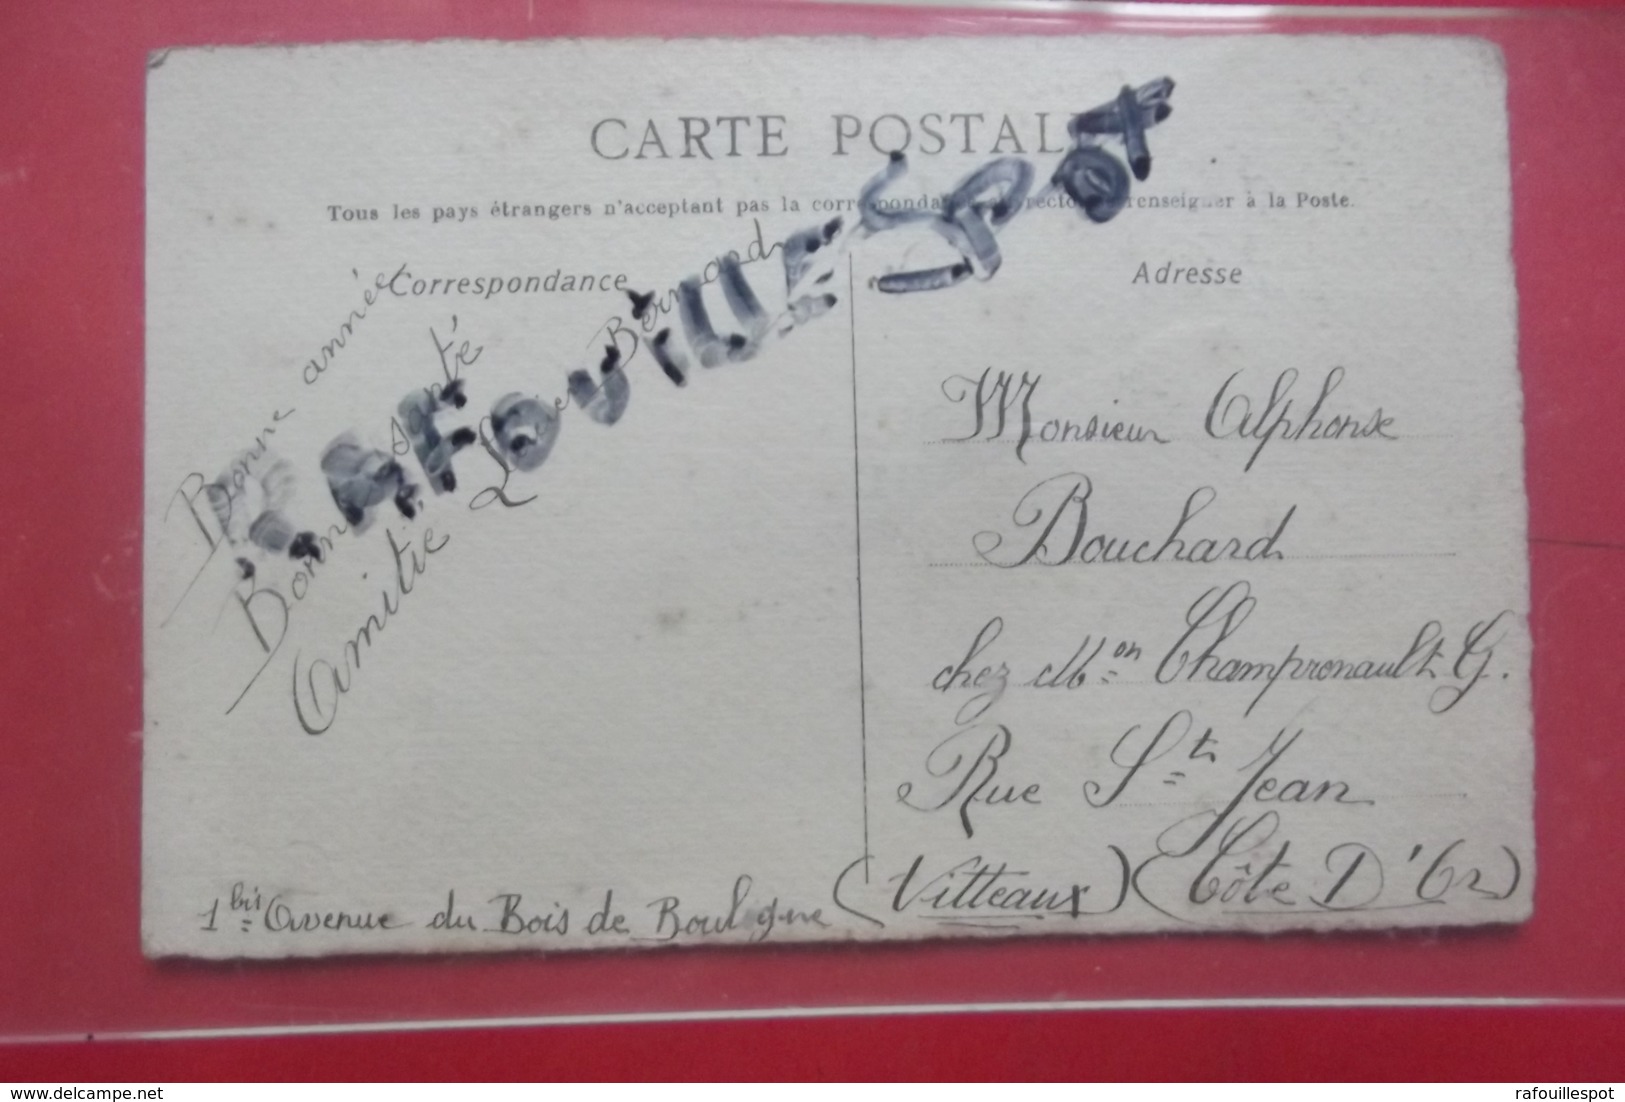 CARTE POSTALE
Tous les pays étrangers n'acceptent pas la correspondance au recto renseigner à la Poste.
Correspondance
Adresse
RAFOUILLESPOT
Bonne année
Bonne santé
Amitié Bernard
Monsieur Alphonse
Bouchard
chez M=on Champronault G.
Rue St Jean
(Vitteaux) (Côte D'Or)
1bis Avenue du Bois de Boulogne
delcampe.net
rafouillespot